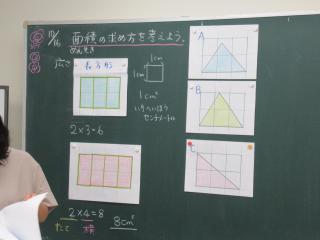 10/16 面積の求め方を考えよう。
めんせき
広さ
長方形
1cm
1cm
1cm²
いちへいほう
センチメートル
2×3=6
2×4=8
たて 横
8cm²
A
B
C